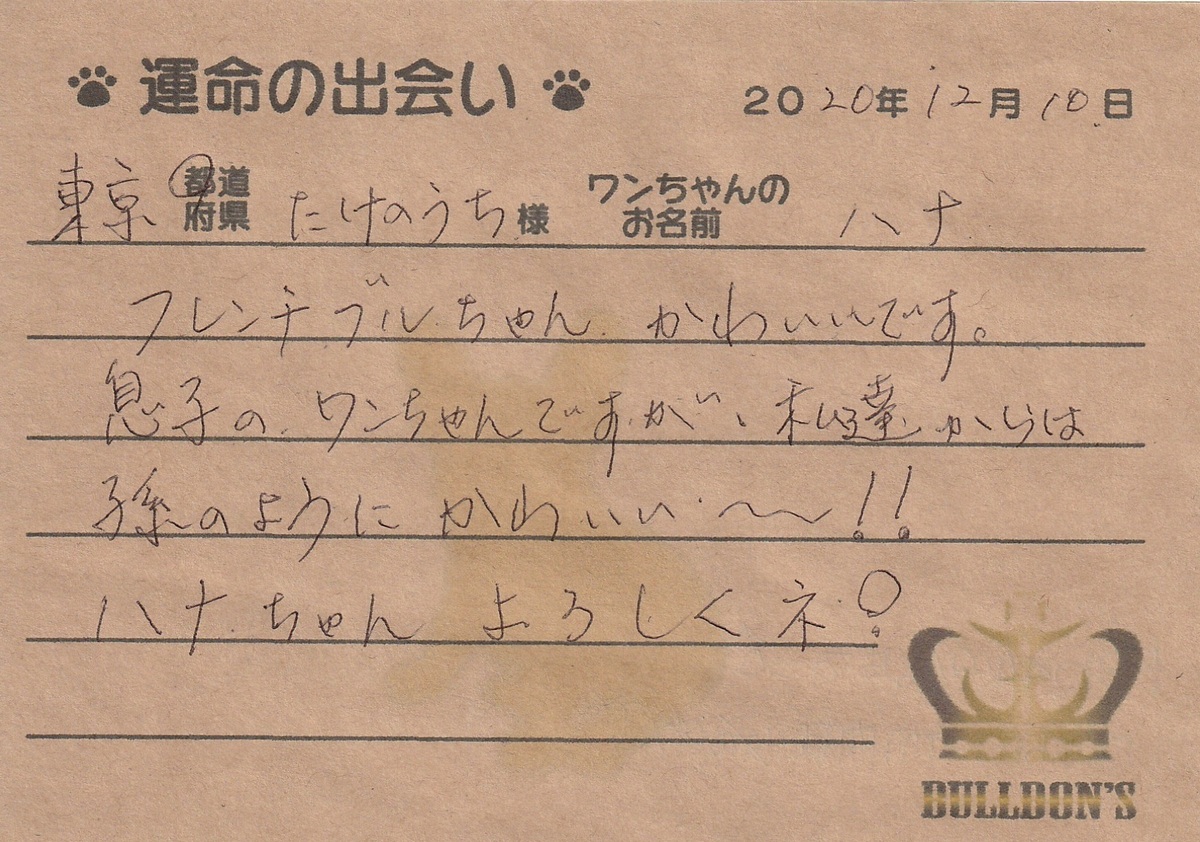 運命の出会い 2020年12月10日
東京 都道府県 たけのうち様 ワンちゃんのお名前 ハナ
フレンチブルちゃん かわいいです。
息子の ワンちゃんですが、私達からは
孫のように かわいい〜〜!!
ハナちゃん よろしくネ!
BULLDON'S